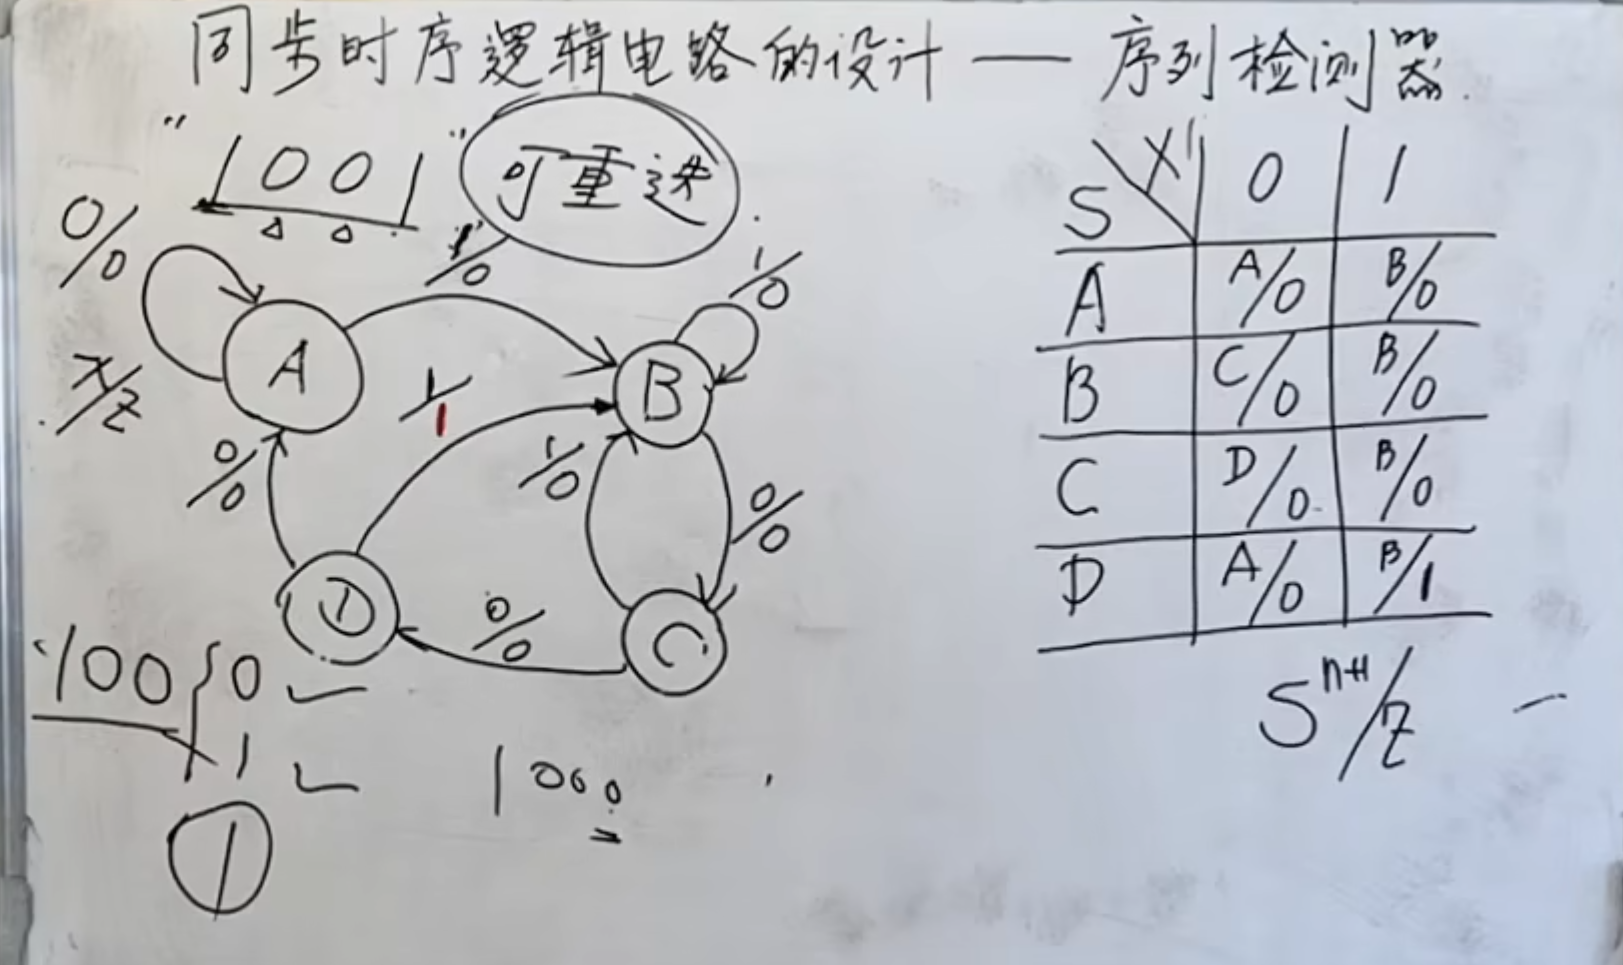 同步时序逻辑电路的设计 — 序列检测器
"1001" 可重迭
0/0
1/0
1/0
X/Z
A
B
1/1
0/0
1/0
0/0
D
C
0/0
100{0 ✓
1 ✓
1
1000
S X 0 1
A A/0 B/0
B C/0 B/0
C D/0 B/0
D A/0 B/1
Sⁿ⁺¹/Z